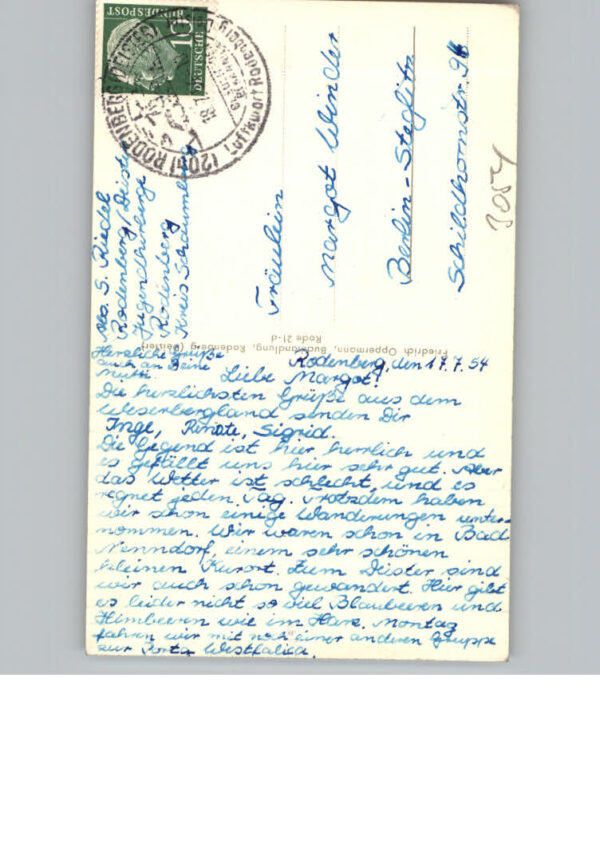 10
DEUTSCHE
BUNDESPOST
(20a) RODENBERG (DEISTER)
Luftkurort Rodenberg
Abs. S. Riedel
Rodenberg/Deister
Jugendherberge
Rodenberg
Kreis Schaumburg
Fräulein
Margot Winder
Berlin-Steglitz
Schildhornstr. 96
3054
Friedrich Oppermann, Buchhandlung, Rodenberg (Deister)
Rode 21-d
Herzliche Grüße
auch an Deine
Mutti.
Rodenberg, den 17.7.54
Liebe Margot!
Die herzlichsten Grüße aus dem
Weserbergland senden Dir
Inge, Renate, Sigrid.
Die Gegend ist hier herrlich und
es gefällt uns hier sehr gut. Aber
das Wetter ist schlecht, und es
regnet jeden Tag. Trotzdem haben
wir schon einige Wanderungen unter-
nommen. Wir waren schon in Bad
Nenndorf, einem sehr schönen
kleinen Kurort. Zum Deister sind
wir auch schon gewandert. Hier gibt
es leider nicht so viel Blaubeeren und
Himbeeren wie im Harz. Montag
fahren wir mit noch einer anderen Gruppe
zur Porta Westfalica.